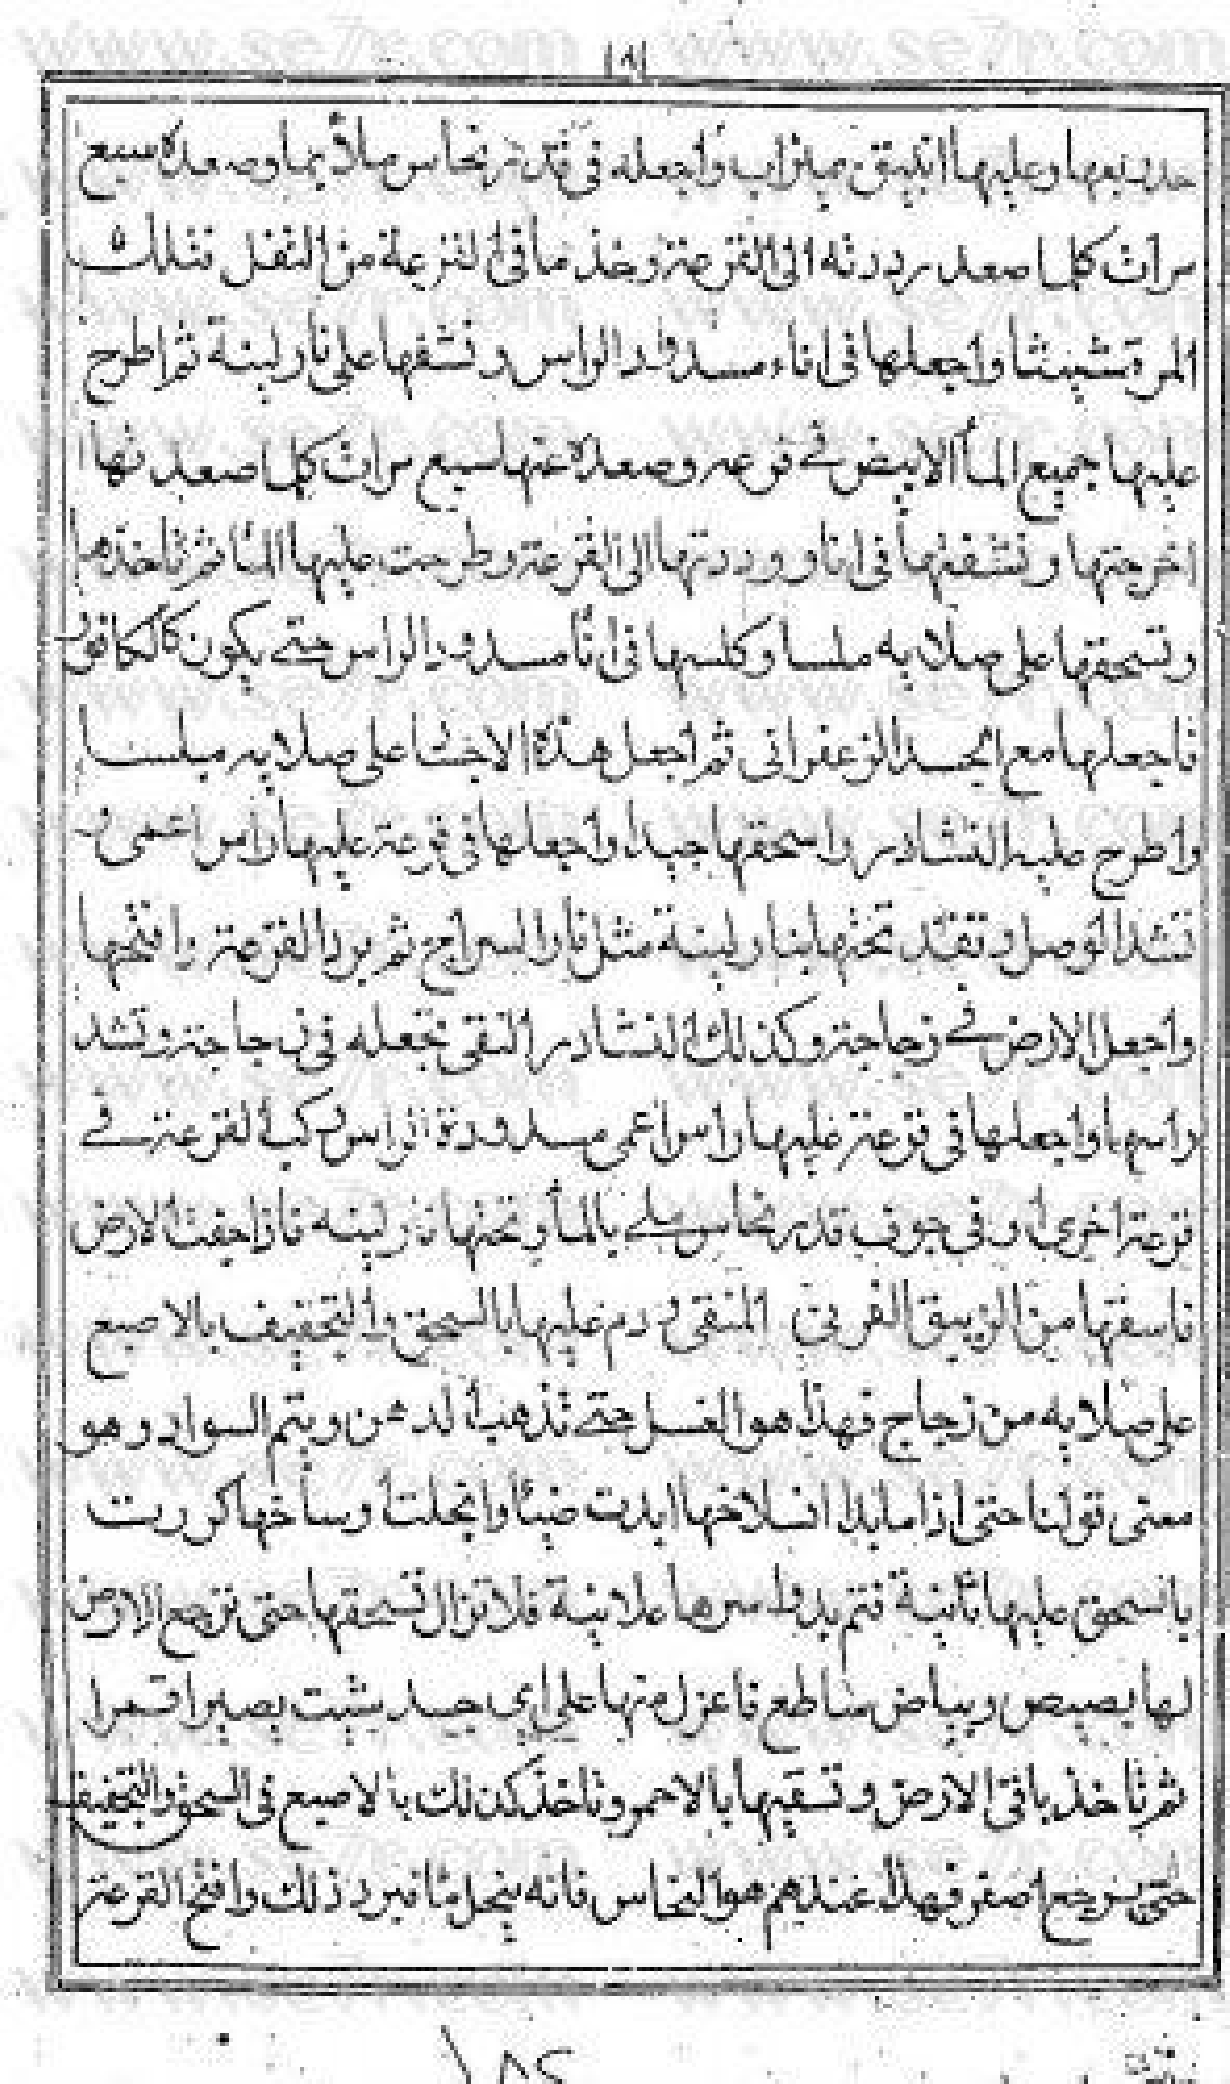 www.se7r.com www.se7r.com
١٨١
وعليها انبيق بميزاب واجعله في قدر نحاس ملأ بما وصعده سبع
مرات كلما صعد رددته الى القرعة وخذ ما في القرعة من الثفل فتلك
المرقشيثا واجعلها في اناء مسدود الراس ونشفها على نار لينة ثم اطرح
عليها جميع المأ الابيض في قرعه وصعده عنها سبع مرات كلما صعد نها
اخرجتها ونشفتها في انا ورددتها الى القرعة وطرحت عليها الما ثم تاخذها
وتسحقها على صلابه ملسا وكلسها في انأ مسدود الراس حتى يكون كالكافور
فاجعلها مع الجسد الزعفرانى ثم اجعل هذه الاجسا على صلابه ملسا
واطرح عليه النشادر واسحقها جيدا واجعلها في قرعة عليها راس اعمى و
تشد الوصل وتقد تحتها بنار لينة مثل نار السراج ثم برد القرعة وافتحها
واجعل الارض في زجاجة وكذلك النشادر النقى تجعله في زجاجة وتشد
راسها واجعلها في قرعة عليها راس اعمى مسدودة الراس وكب القرعة في
قرعة اخرى او في جوف قدر نحاس ملى بالمأ وتحتها نار لينه فاذا جفت الارض
فاسقها من الزيبق الغربى المنقى ودم عليها بالسحق والتجفيف بالاصبع
على صلابه من زجاج فهذا هو الغسل حتى تذهب الدهن ويتم السواد وهو
معنى قولنا حتى اذا ما بدا انسلاخها ابدت ضيأ وانجلت وساخها كررت
بالسحق عليها ثانية فتم يدوا سرها علانية فلا تزال تسحقها حتى ترجع الارض
لها بصيص وبياض ساطع فاعزل منها على اى جسد شيت يصير قمرا
ثم تاخذ باقى الارض وتسقيها بالاحمر وتاخذ كذلك بالاصبع في السحق والتجفيف
حتى يرجع اصفر فهذا عندهم هو النحاس فانه ينحل ما فبرد ذلك وافتح القرعة
١٨٢